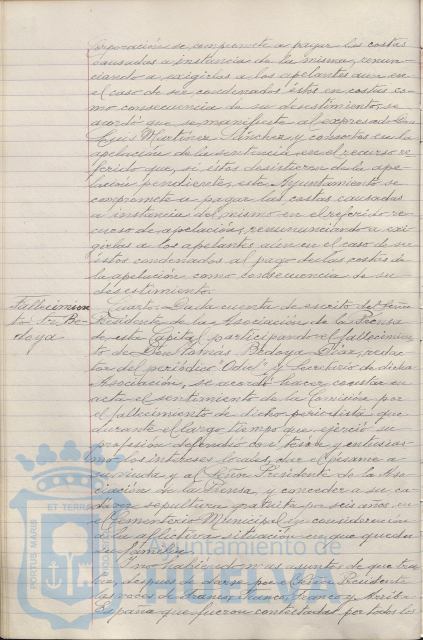 Corporación se compromete a pagar las costas
causadas a instancia de la misma, renun-
ciando a exigirlas a los apelantes aun en
el caso de ser condenados éstos en costas co-
mo consecuencia de su desestimiento, se
acordó que se manifieste al expresado Don
Luis Martínez Sánchez y consortes en la
apelación de la sentencia en el recurso re-
ferido que, si éstos desistieren de la ape-
lación pendiente, este Ayuntamiento se
compromete a pagar las costas causadas
a instancia del mismo en el referido re-
curso de apelación, renunciando a exi-
girlas a los apelantes aún en el caso de ser
éstos condenados al pago de las costas de
la apelación como consecuencia de su
desestimiento.
Fallecimien
to Sr. Be-
doya
Cuarto. Dada cuenta de escrito del Señor
Presidente de la Asociación de la Prensa
de esta Capital participando el fallecimien
to de Don Tomás Bedoya Díaz, redac
tor del periódico "Odiel" y Secretario de dicha
Asociación, se acordó hacer constar en
acta el sentimiento de la Comisión por
el fallecimiento de dicho periodista que
durante el largo tiempo que ejerció su
profesión defendió con tesón y entusias-
mo los intereses locales, dar el pésame a
su viuda y al Señor Presidente de la Aso
ciación de la Prensa, y conceder a su ca-
dáver sepultura gratuita por seis años en
el Cementerio Municipal en consideración
a la aflictiva situación en que queda
su familia.
Y no habiendo mas asuntos de que tra
tar, después de darse por el Señor Presidente
las voces de Franco, Franco, Franco y Arriba
España que fueron contestadas por todos los
PORTUS MARIS
ET TERRAE
Ayuntamiento de